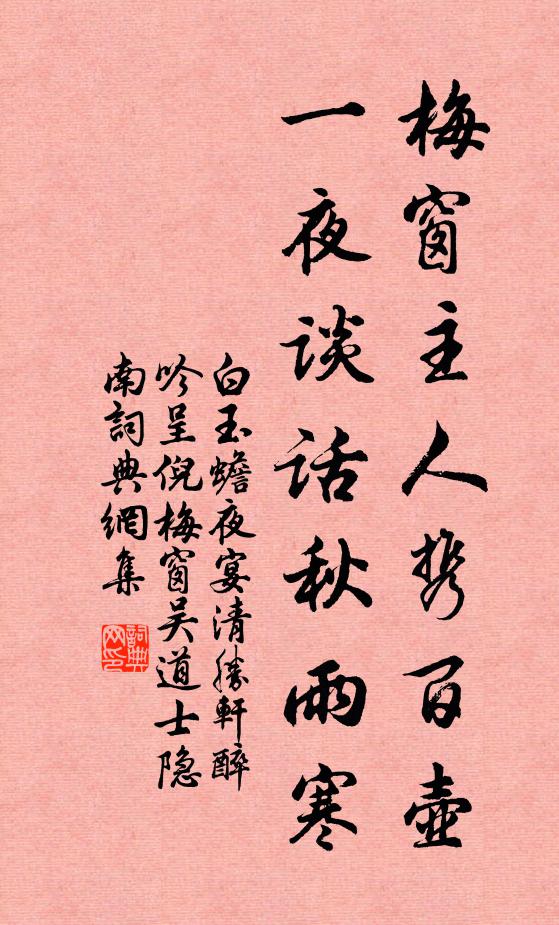 梅窗主人携百壶
一夜谈话秋雨寒
白玉蟾夜宴清胜軒醉
吟呈倪梅窗吴道士隐
南詞典網集
詞典网印